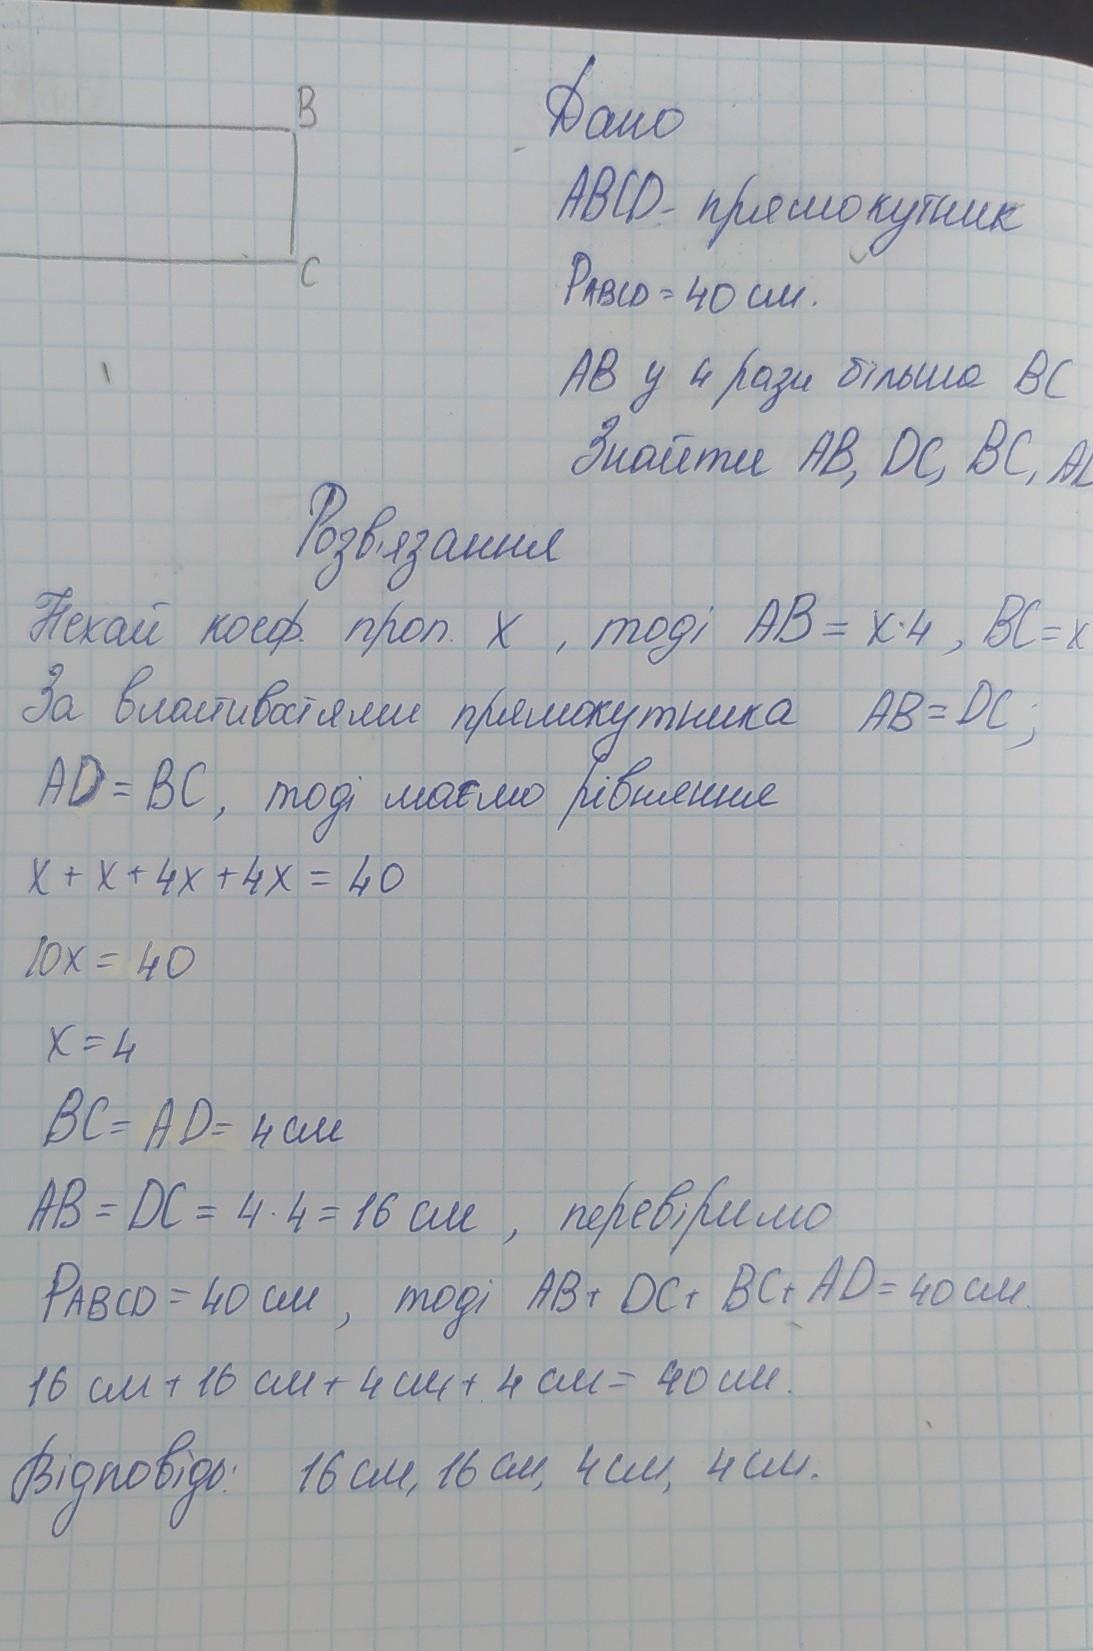 B
C
Дано
ABCD - прямокутник
PABCD = 40 см.
AB у 4 рази більша BC
Знайти AB, DC, BC, AD
Розв'язання
Нехай коеф. проп. x , тоді AB = x·4, BC = x
За властивостями прямокутника AB = DC;
AD = BC, тоді маємо рівняння
x + x + 4x + 4x = 40
10x = 40
x = 4
BC = AD = 4 см
AB = DC = 4·4 = 16 см , перевіримо
PABCD = 40 см , тоді AB + DC + BC + AD = 40 см.
16 см + 16 см + 4 см + 4 см = 40 см.
Відповідь: 16 см, 16 см, 4 см, 4 см.